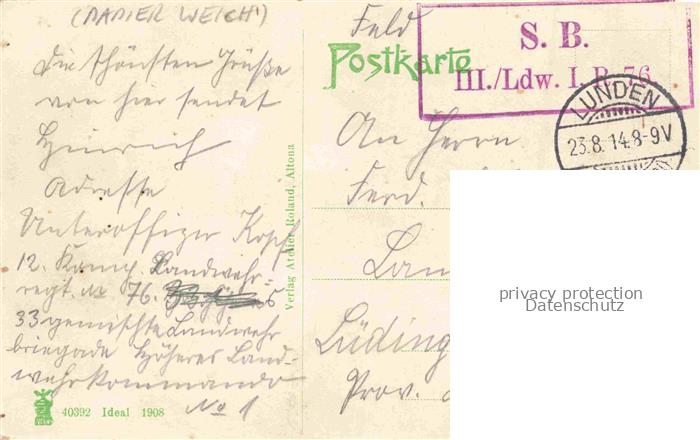 (PAPIER WEICH!)
Die schönsten Grüße
von hier sendet
Hinrich
Adresse
Unteroffizier Kopf
12. Komp. Landwehr-
regt. No 76.
33 gemischte Landwehr
briegade Höheres Land-
wehrkommando
No 1
40392 Ideal 1908
Verlag Atelier Roland, Altona
Feld
Postkarte
S. B.
III./Ldw. I. R. 76.
LUNDEN
23.8.14.8-9V
An Herrn
Ferd.
Lan
Lüding
Prov.
privacy protection
Datenschutz